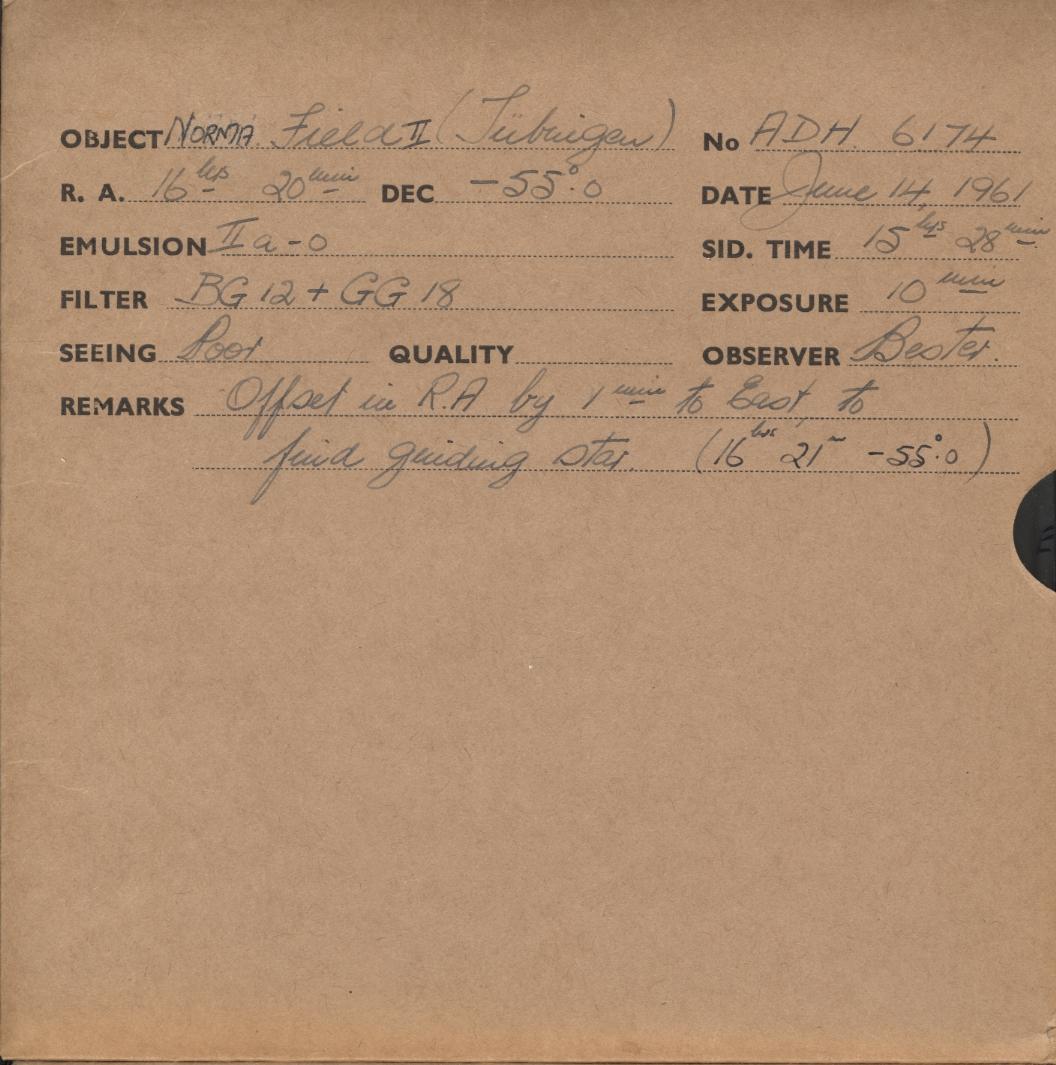 OBJECT NORMA. Field II (Tübingen) No ADH. 6174
R. A. 16 hrs 20 min DEC -55°.0 DATE June 14, 1961
EMULSION II a-o SID. TIME 15 hrs 28 min
FILTER BG 12 + GG 18 EXPOSURE 10 min
SEEING Poor QUALITY OBSERVER Bester.
REMARKS Offset in R.A by 1 min to East, to
find guiding star. (16 hrs 21 m -55°.0)